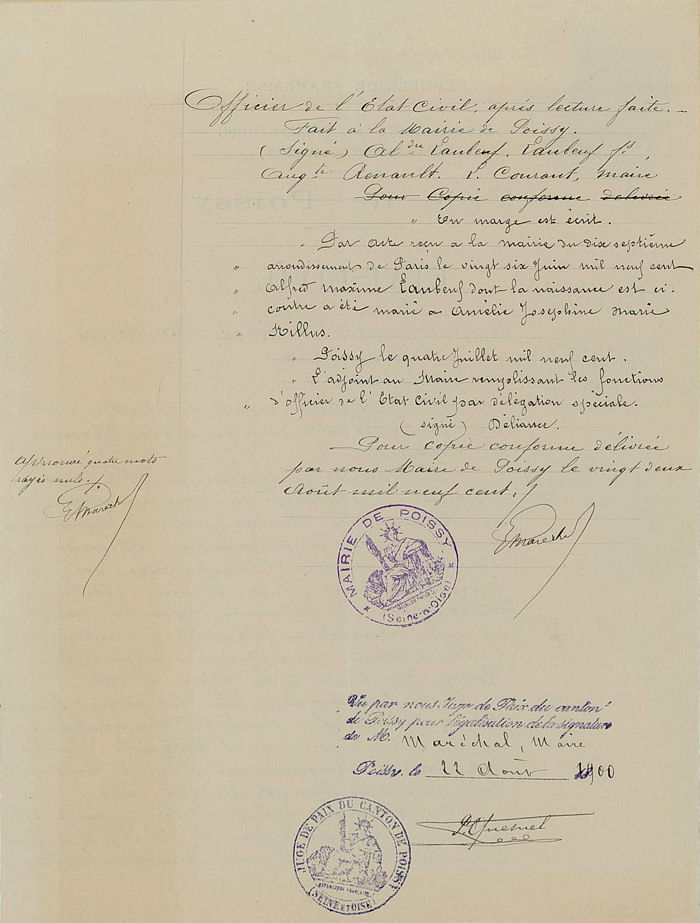 Officier de l'Etat Civil, après lecture faite. —
Fait à la Mairie de Poissy.
(Signé) Al^dre Laubeuf, Laubeuf f^s,
Aug^te Renault. L. Courant, Maire
Pour Copie conforme délivrée
" En marge est écrit.
" Par acte reçu a la mairie du dix septième
" arrondissement de Paris le vingt six Juin mil neuf cent
" Alfred maxime Laubeuf dont la naissance est ci.
" contre a été marié a Amélie Josephine Marie
" Killus.
" Poissy le quatre Juillet mil neuf cent.
" L'adjoint au Maire remplissant les fonctions
" d'officier de l'Etat Civil par délégation spéciale.
(signé) Déliance.
Pour copie conforme délivrée
par nous Maire de Poissy le vingt deux
Août mil neuf cent.
Approuvé quatre mots
rayés nuls.
Maréchal
Maréchal
MAIRIE DE POISSY
(Seine-&-Oise)
Vu par nous Juge de Paix du canton
de Poissy pour légalisation de la signature
de M. Maréchal, Maire
Poissy, le 22 Août 1900
JUGE DE PAIX DU CANTON DE POISSY
(SEINE ET OISE)